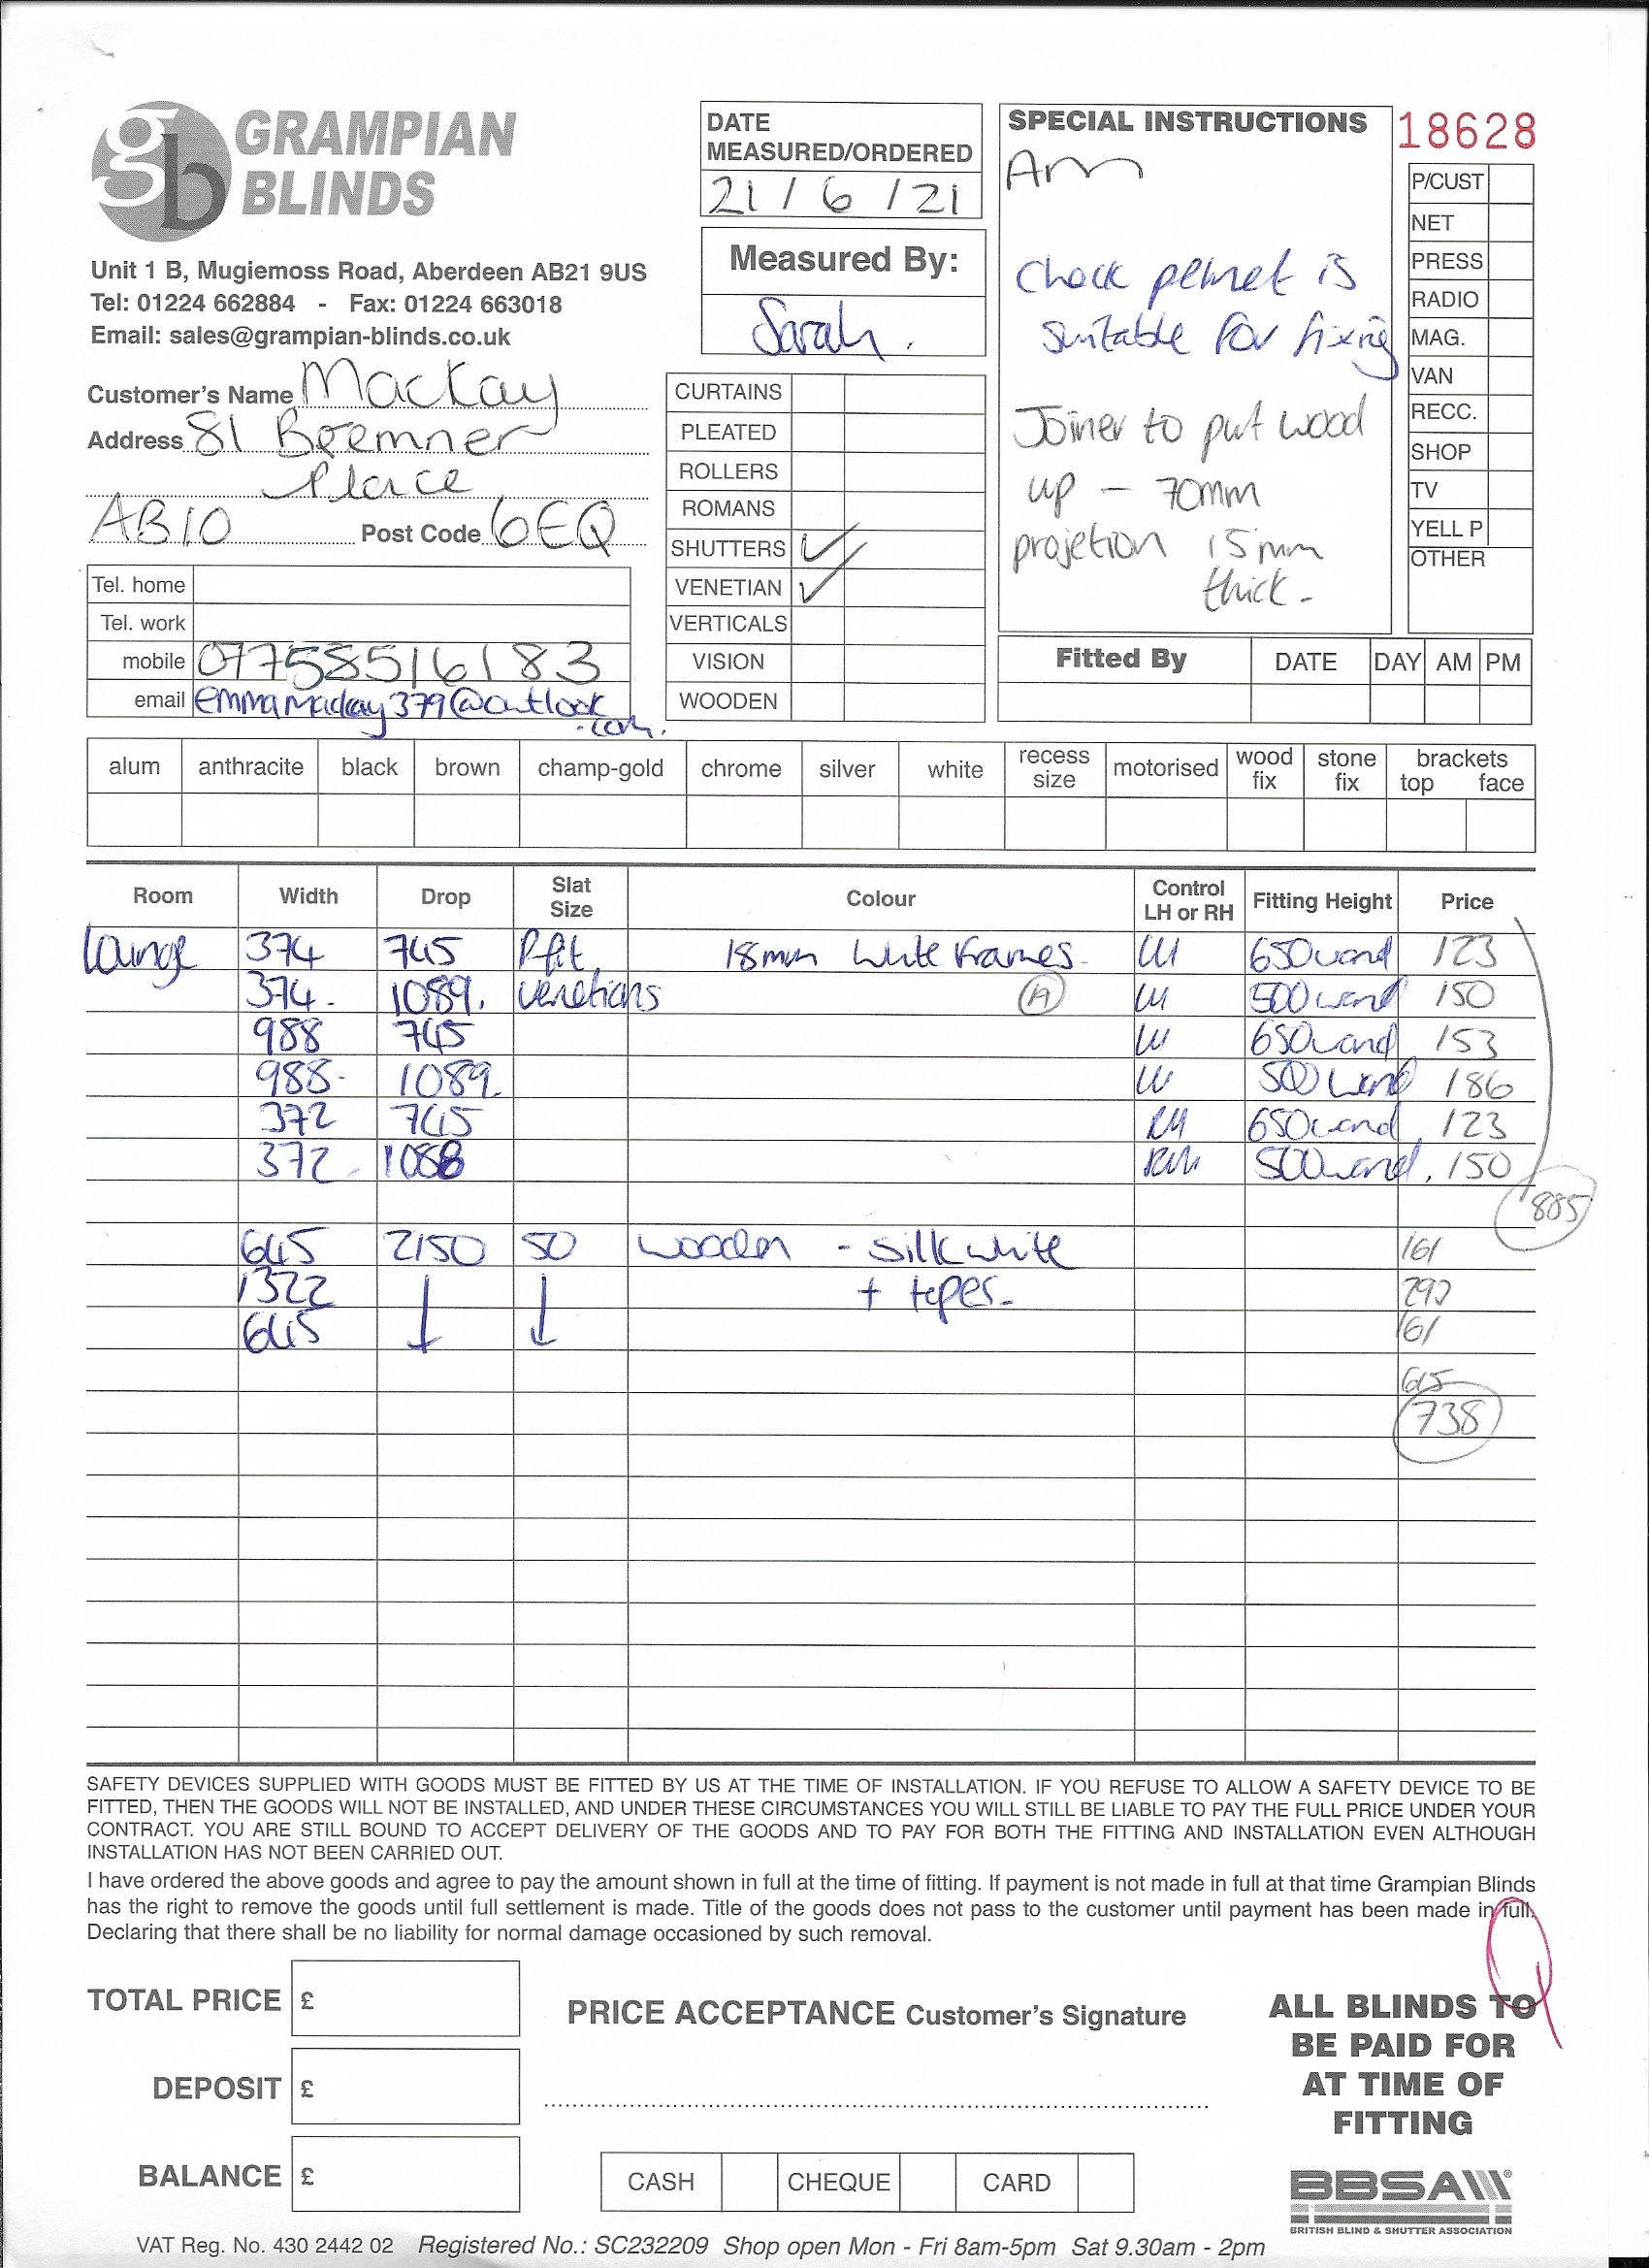 gb GRAMPIAN
BLINDS
Unit 1 B, Mugiemoss Road, Aberdeen AB21 9US
Tel: 01224 662884 - Fax: 01224 663018
Email: sales@grampian-blinds.co.uk
Customer's Name Mackay
Address 81 Bremner
Place
AB10 Post Code 6EQ
Tel. home
Tel. work
mobile 07758516183
email emmamackay379@outlook
.com.
DATE
MEASURED/ORDERED
21 / 6 / 21
Measured By:
Sarah.
CURTAINS
PLEATED
ROLLERS
ROMANS
SHUTTERS ✓
VENETIAN ✓
VERTICALS
VISION
WOODEN
SPECIAL INSTRUCTIONS
Am
Check pelmet is
suitable for fixing
Joiner to put wood
up - 70mm
projetion 15mm
thick.
18628
P/CUST
NET
PRESS
RADIO
MAG.
VAN
RECC.
SHOP
TV
YELL P
OTHER
Fitted By DATE DAY AM PM
alum anthracite black brown champ-gold chrome silver white recess size motorised wood fix stone fix brackets top face
Room Width Drop Slat Size Colour Control LH or RH Fitting Height Price
Lounge 374 745 P.fit 18mm White Frames. LH 650wand 123
374. 1089. Venetians A LH 500wand 150
988 745 LH 650wand 153
988. 1089. LH 500wand 186
372 745 RH 650wand 123
372. 1088 RH 500wand. 150
885
645 2150 50 wooden - silk white 161
1322 + tapes. 292
645 161
615
738
SAFETY DEVICES SUPPLIED WITH GOODS MUST BE FITTED BY US AT THE TIME OF INSTALLATION. IF YOU REFUSE TO ALLOW A SAFETY DEVICE TO BE
FITTED, THEN THE GOODS WILL NOT BE INSTALLED, AND UNDER THESE CIRCUMSTANCES YOU WILL STILL BE LIABLE TO PAY THE FULL PRICE UNDER YOUR
CONTRACT. YOU ARE STILL BOUND TO ACCEPT DELIVERY OF THE GOODS AND TO PAY FOR BOTH THE FITTING AND INSTALLATION EVEN ALTHOUGH
INSTALLATION HAS NOT BEEN CARRIED OUT.
I have ordered the above goods and agree to pay the amount shown in full at the time of fitting. If payment is not made in full at that time Grampian Blinds
has the right to remove the goods until full settlement is made. Title of the goods does not pass to the customer until payment has been made in full.
Declaring that there shall be no liability for normal damage occasioned by such removal.
TOTAL PRICE £
DEPOSIT £
BALANCE £
PRICE ACCEPTANCE Customer's Signature
CASH CHEQUE CARD
ALL BLINDS TO
BE PAID FOR
AT TIME OF
FITTING
BBSA
BRITISH BLIND & SHUTTER ASSOCIATION
VAT Reg. No. 430 2442 02 Registered No.: SC232209 Shop open Mon - Fri 8am-5pm Sat 9.30am - 2pm